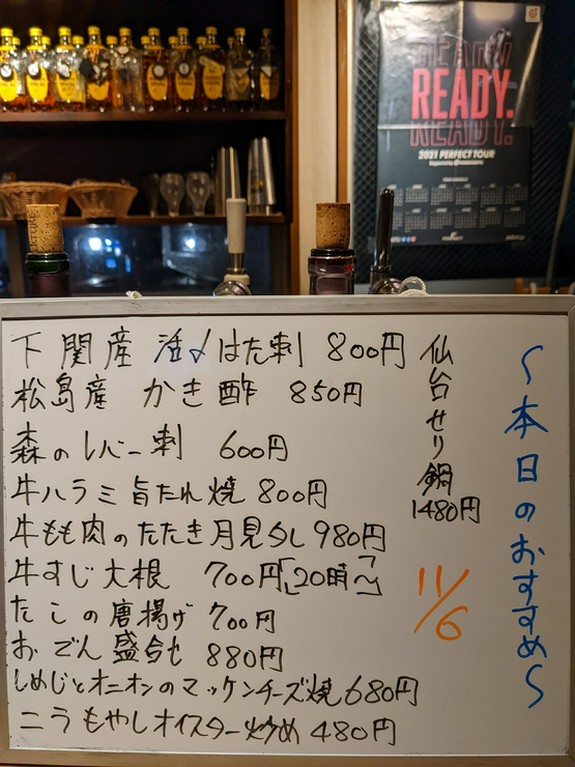 READY.
READY.
READY.
2021 PERFECT TOUR
〜本日のおすすめ〜
11/6
仙台せり鍋
1480円
下関産 活〆はた刺 800円
松島産 かき酢 850円
森のレバー刺 600円
牛ハラミ旨たれ焼 800円
牛もも肉のたたき月見タレ 980円
牛すじ大根 700円「20時〜」
たこの唐揚げ 700円
おでん盛合せ 880円
しめじとオニオンのマッケンチーズ焼 680円
ニラもやしオイスター炒め 480円